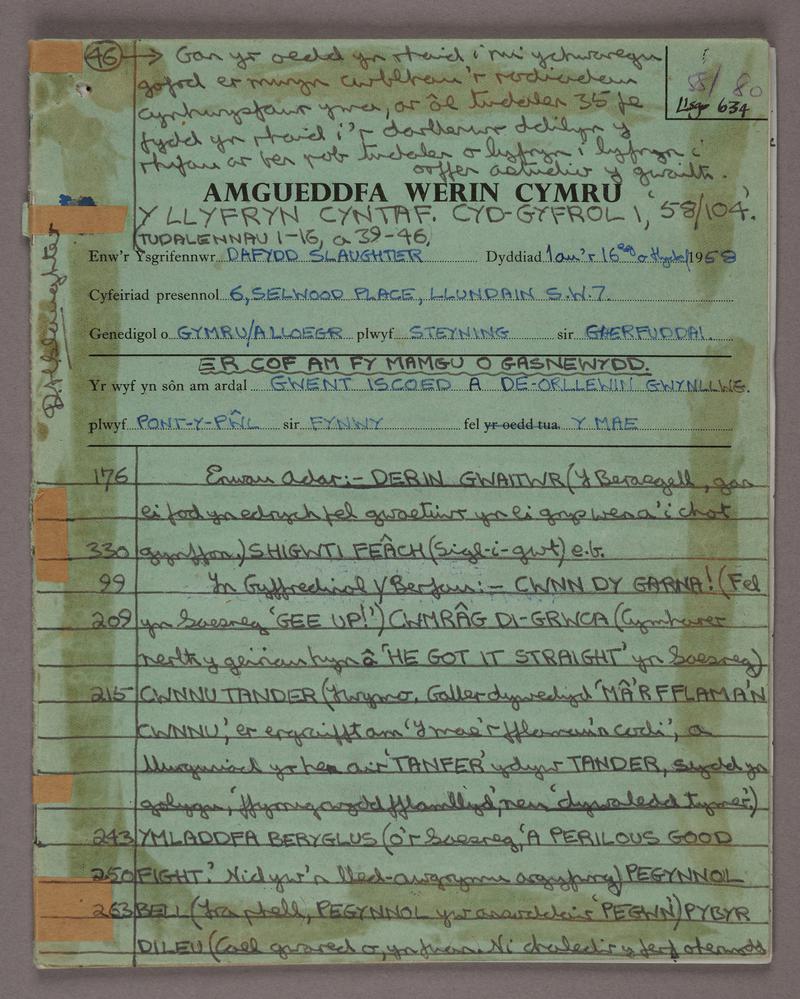 46 → Gan yr oedd yn rhaid i mi ychwaregu
gofod er mwyn cwblhau'r rodiadau
cynhwysfawr yma, ar ôl tudalen 35 fe
fydd yn rhaid i'r darllenwr ddilyn y
rhifau ar ben pob tudalen o lyfryn i lyfryn i
orffen astudio'r gwaith.
58/80
Llsgr 634
AMGUEDDFA WERIN CYMRU
Y LLYFRYN CYNTAF. CYD-GYFROL 1, '58/104'.
(TUDALENNAU 1-16, a 39-46,
Enw'r Ysgrifennwr DAFYDD SLAUGHTER Dyddiad 1 au'r 16eg o Hydref 1958
Cyfeiriad presennol 6, SELWOOD PLACE, LLUNDAIN S.W.7.
Genedigol o GYMRU/A LLOEGR plwyf STEYNING sir GAERFUDDAI.
ER COF AM FY MAMGU O GASNEWYDD.
Yr wyf yn sôn am ardal GWENT ISCOED A DE-ORLLEWIN GWYNLLWG.
plwyf PONT-Y-PŴL sir FYNWY fel yr oedd tua Y MAE
176 Enwau Adar:- DERIN GWAITWR (Y Beraegell, gan
ei fod yn edrych fel gwaetiwr yn ei grys wen a'i chot
330 gynffon.) SHIGWTI FEÂCH (Sigl-i-gwt) e.b.
99 Yn Gyffrediniol Y Berfau:- CWNN DY GARNA! (Fel
209 yn Saesneg 'GEE UP!') CWMRÂG DI-GRWCA (Cymharer
nerth y geiriau hyn â 'HE GOT IT STRAIGHT' yn Saesneg)
215 CWNNU TANDER (Twymo. Galler dywedyd 'MÂ'R FFLAMA'N
CWNNU', er engraifft am 'Y mae'r fflamau'n codi', a
llurguniad yr hen air 'TANFER' ydyw TANDER, sydd yn
golygu, 'ffyrnigrwydd fflamllyd', neu 'dywaledd tymer')
243 YMLADDFA BERYGLUS (O'r Saesneg, 'A PERILOUS GOOD
250 FIGHT.' Nid yw'n lled-awgrymu argyfwng) PEGYNNOL
263 BELL (Tra phell, PEGYNNOL yw ansoddair 'PEGWN') PYBYR
DILEU (Cael gwared o, yn fuan. Ni chaledir y ferf